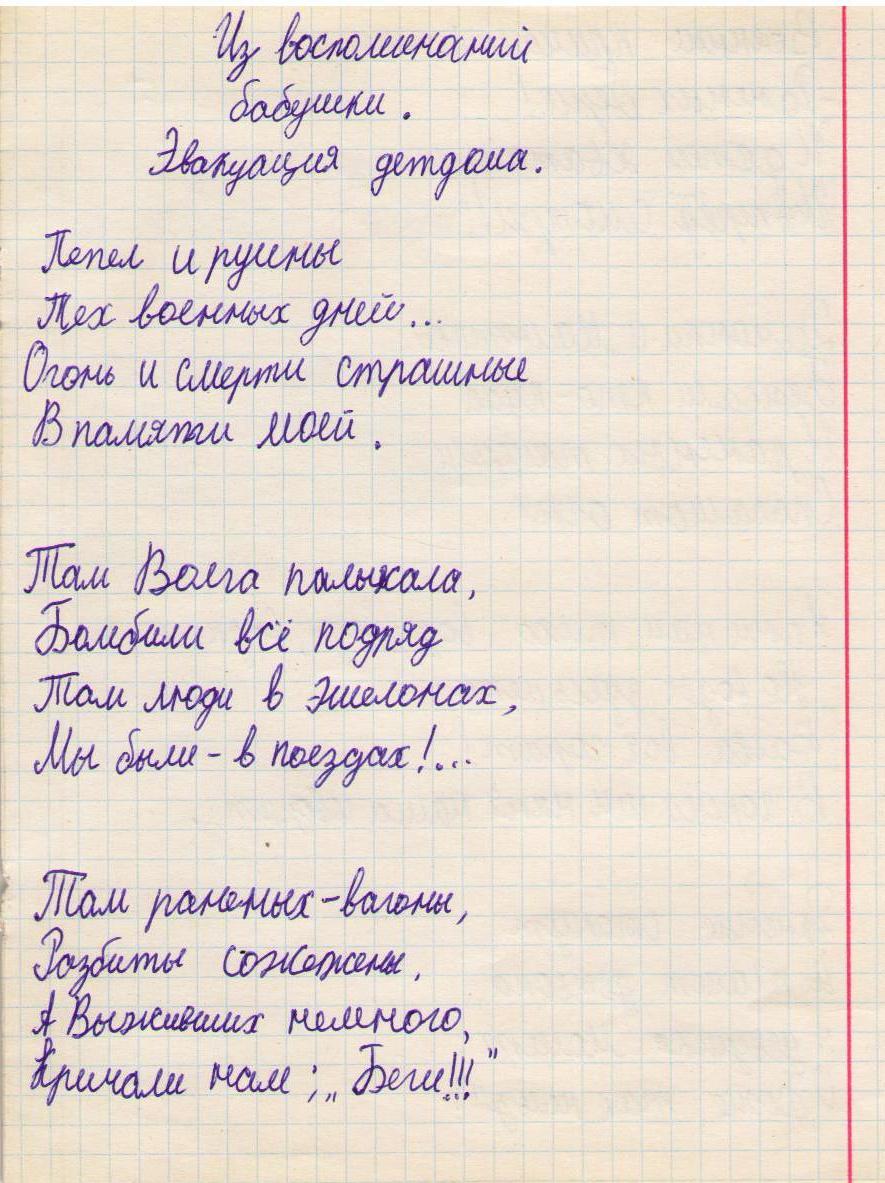 Из воспоминаний
бабушки.
Эвакуация детдома.
Пепел и руины
Тех военных дней...
Огонь и смерти страшные
В памяти моей.
Там Волга палыхала,
Бомбили всё подряд
Там люди в эшелонах,
Мы были - в поездах!...
Там раненых - вагоны,
Разбиты сожжены,
А Выживших немного,
Кричали нам: „Беги!!!"